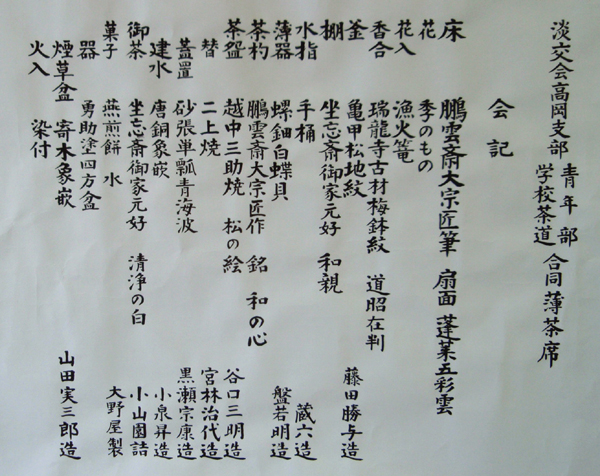 淡交会高岡支部 青年部 学校茶道 合同薄茶席
会記
床 鵬雲斎大宗匠筆 扇面 蓬莱五彩雲
花 季のもの
花入 漁火篭
香合 瑞龍寺古材梅鉢紋 道昭在判
釜 亀甲松地紋 藤田勝与造
棚 坐忘斎御家元好 和親
水指 手桶 蔵六造
薄器 螺鈿白蝶貝 盤若明造
茶杓 鵬雲斎大宗匠作 銘 和の心
茶盌 越中三助焼 松の絵 谷口三明造
替 二上焼 宮林治代造
蓋置 砂張単瓢青海波 黒瀬宗康造
建水 唐銅象嵌 小泉昇造
御茶 坐忘斎御家元好 清浄の白 小山園詰
菓子 燕煎餅 水 大野屋製
器 勇助塗四方盆
煙草盆 寄木象嵌 山田実三郎造
火入 染付